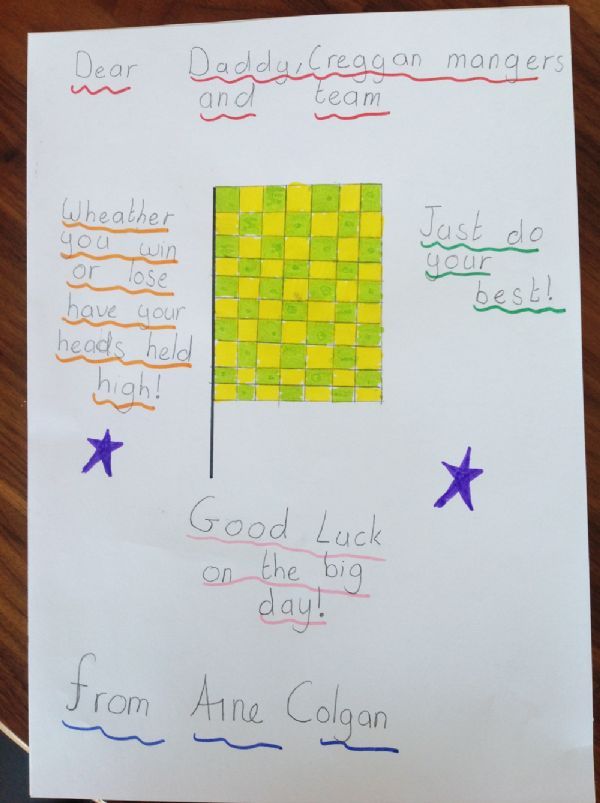 Dear Daddy, Creggan mangers
and team
Wheather
you win
or lose
have your
heads held
high!
Just do
your
best!
Good Luck
on the big
day!
from Aine Colgan